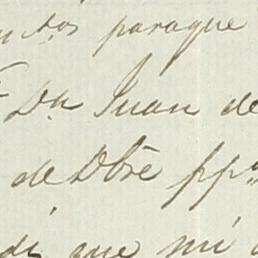 paraque
Dn Juan de
de Dbre pp
que mi